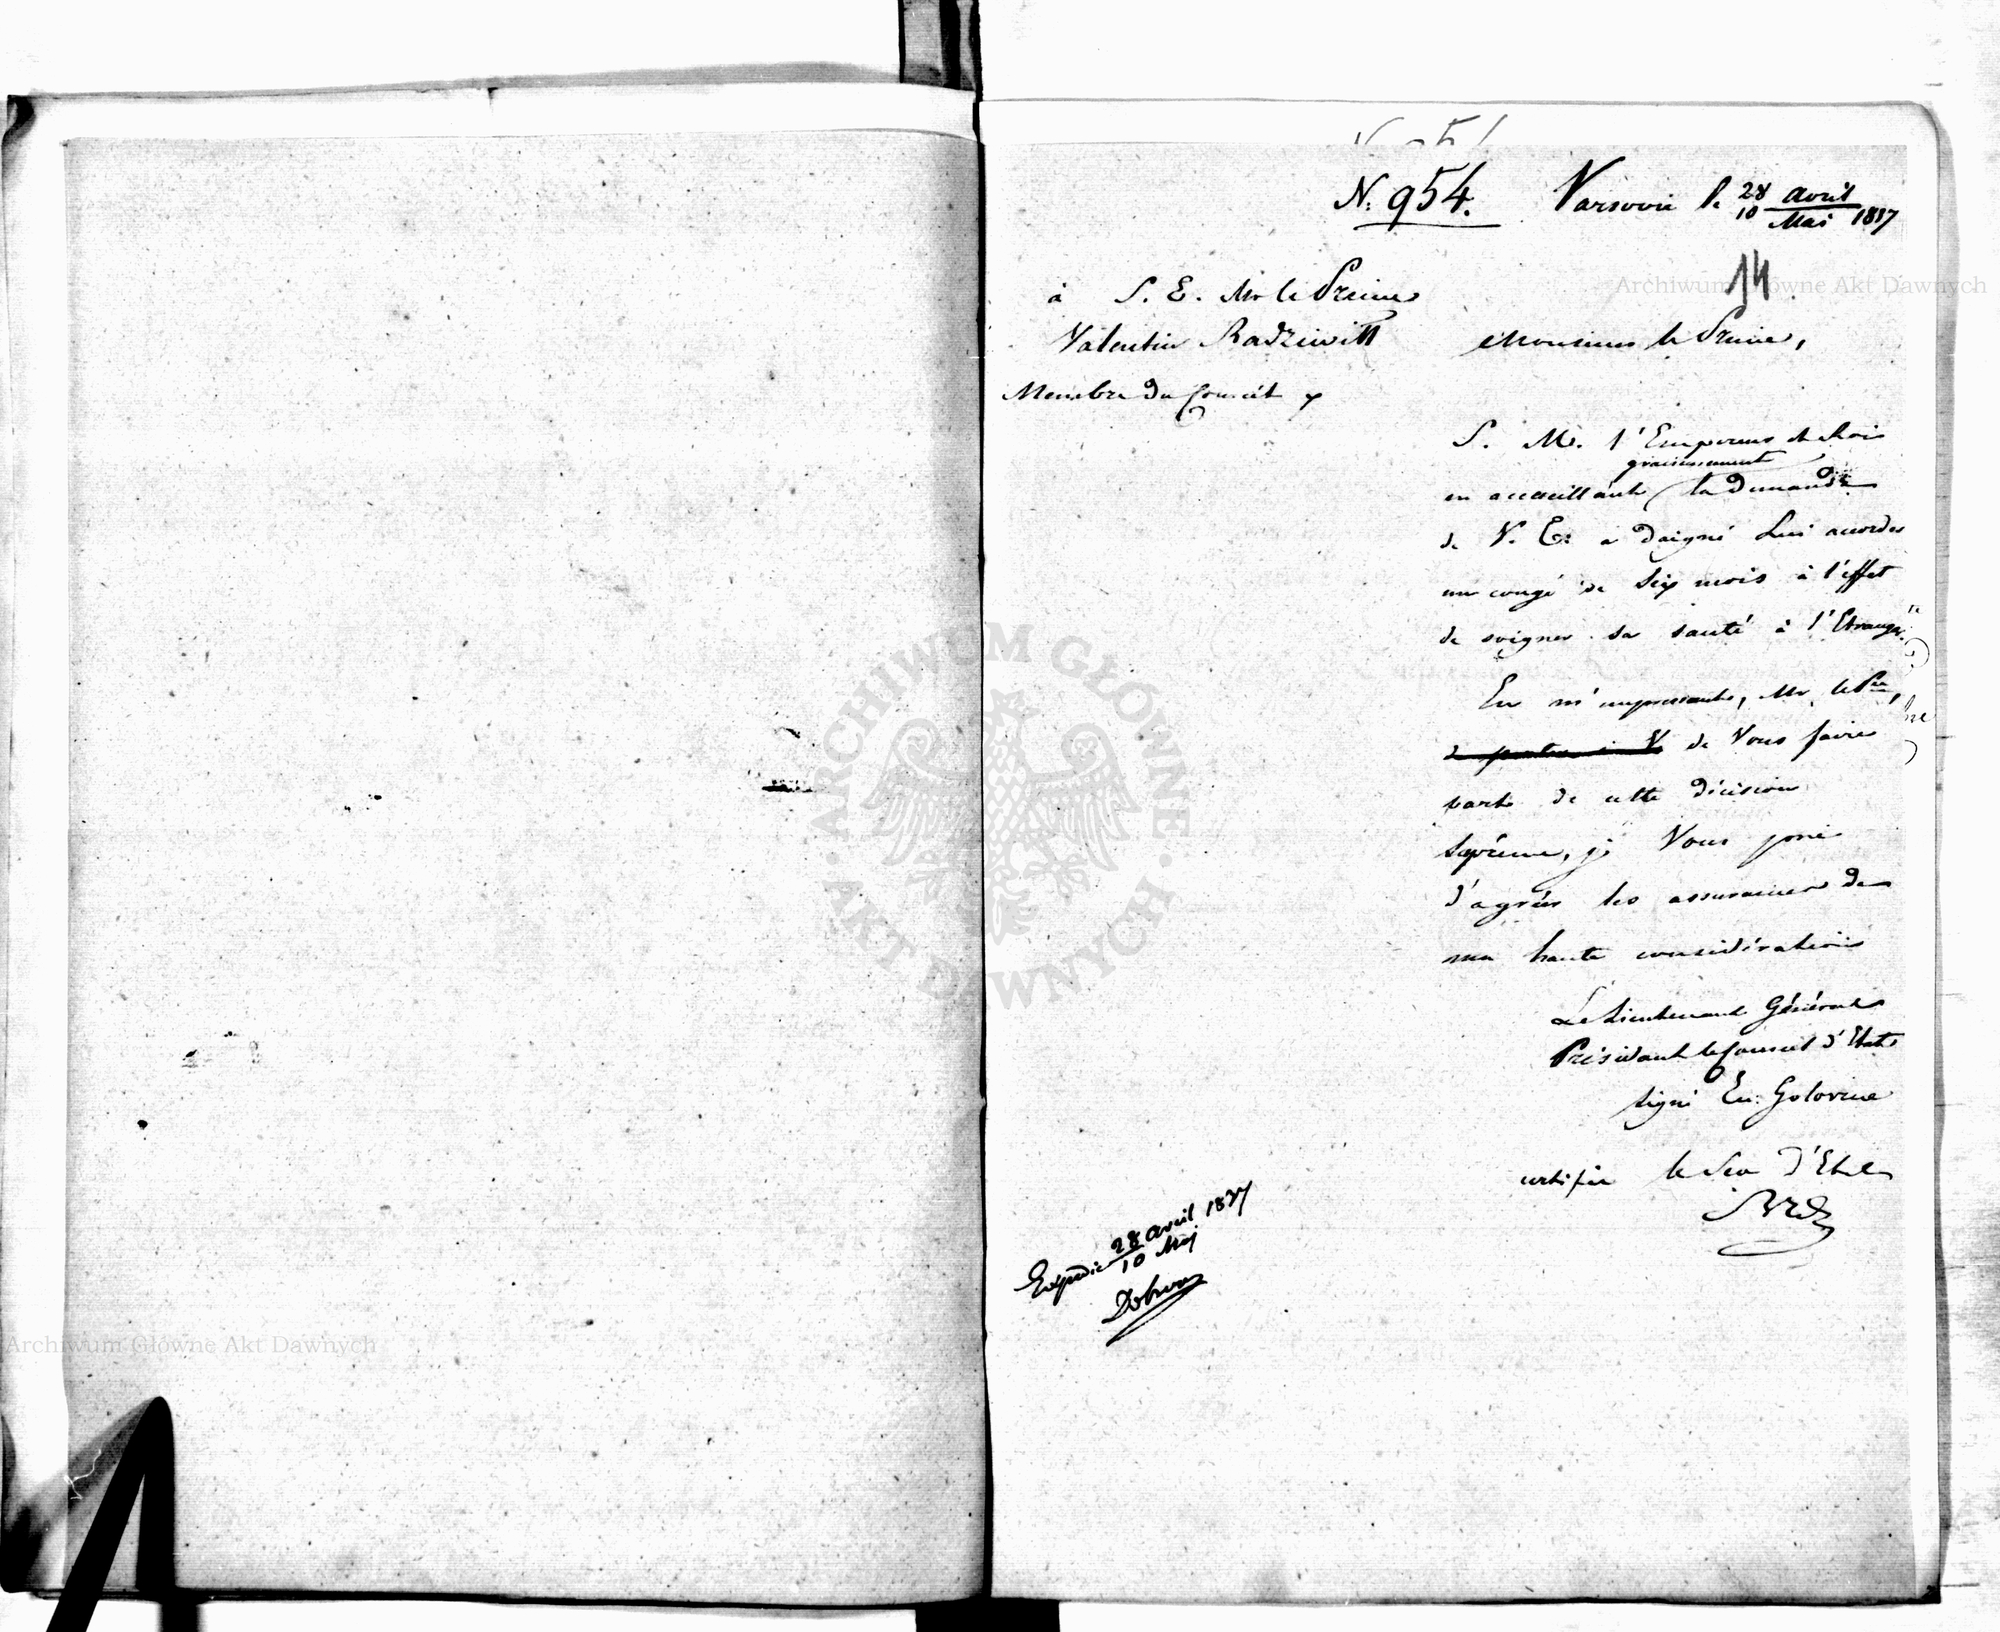 N: 954. Varsovie le 28 avril / 10 Mai 1837
14
à S. E. Mr le Prince
Valentin Radziwill
Membre du Conseil
Monsieur le Prince,
S. M. l'Empereur et Roi
gracieusement
en accueillant la demande
de V. E. a daigné Lui accorder
un congé de six mois à l'effet
de soigner sa santé à l'Etranger.
En m'empressant, Mr le Pce,
de Vous faire
part de cette décision
suprême, je Vous prie
d'agréer les assurances de
ma haute considération
Le Lieutenant Général
Présidant le Conseil d'Etat
signé Eu: Golovine
certifié le Sec d'Etat
Expedié 28 avril / 10 Maj 1837
Archiwum Główne Akt Dawnych
ARCHIWUM GŁÓWNE · AKT DAWNYCH ·
Archiwum Główne Akt Dawnych